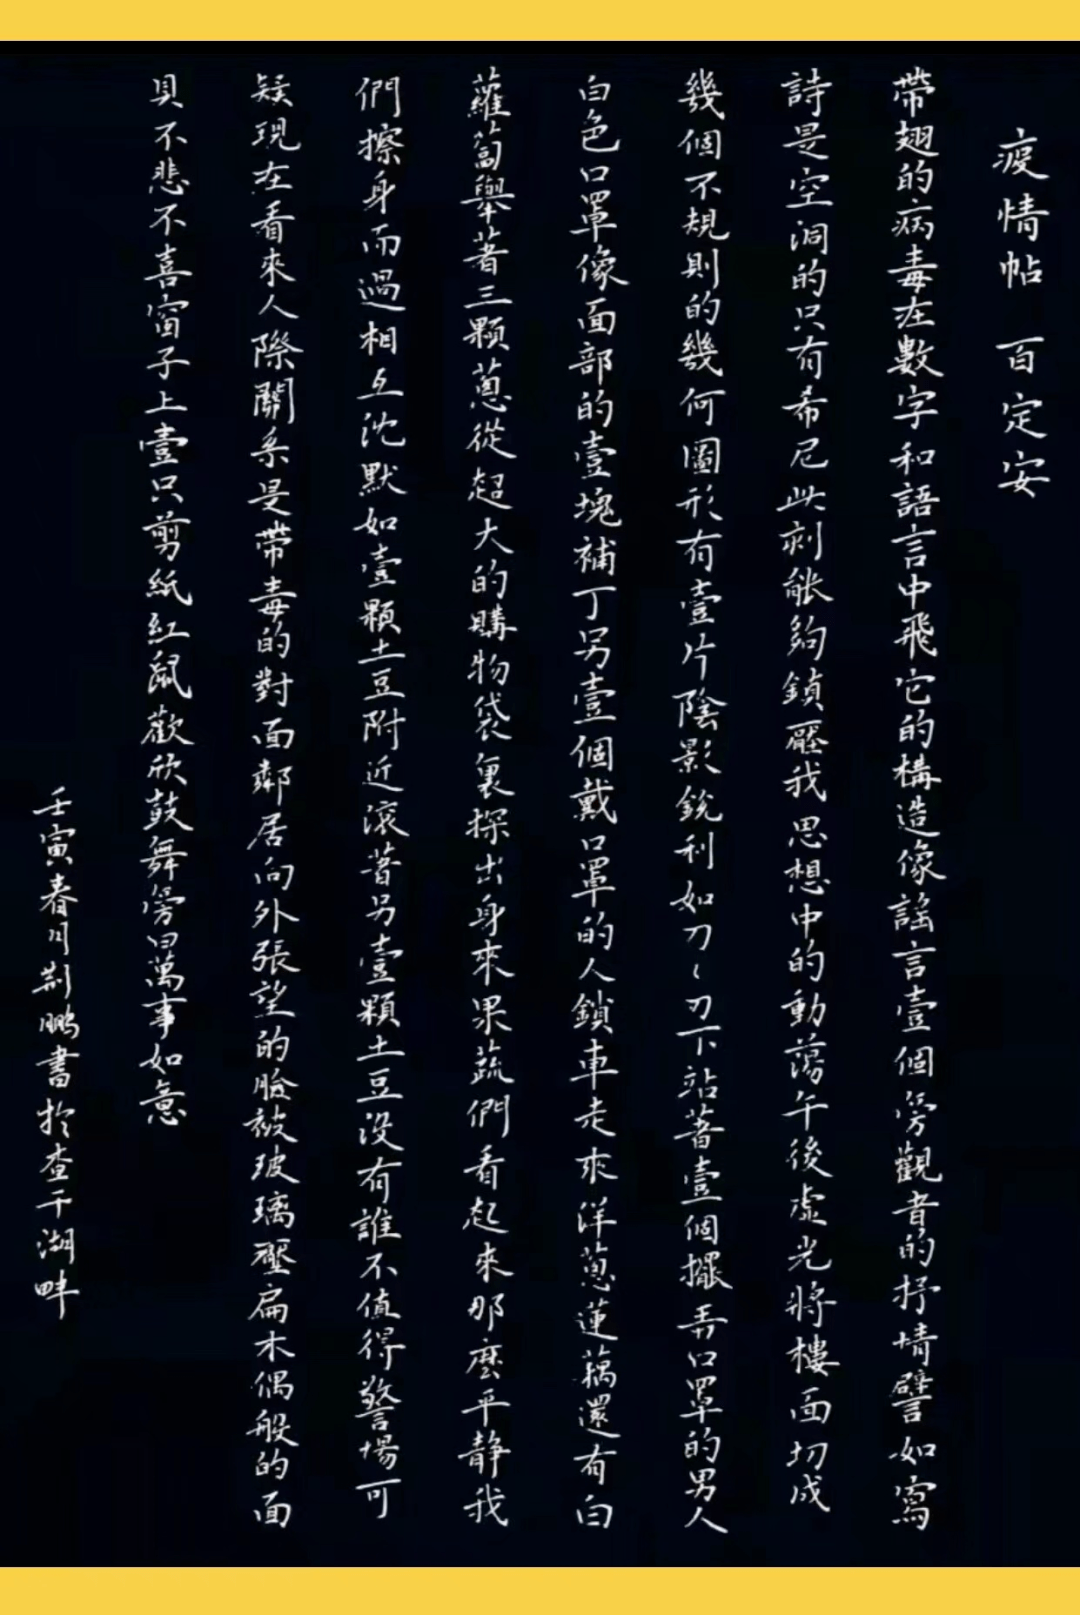 疫情帖 百定安
帶翅的病毒在數字和語言中飛它的構造像謠言壹個旁觀者的抒情譬如寫
詩是空洞的只有希尼此刻能夠鎮壓我思想中的動蕩午後虛光將樓面切成
幾個不規則的幾何圖形有壹片陰影銳利如刀刀刃下站著壹個擺弄口罩的男人
白色口罩像面部的壹塊補丁另壹個戴口罩的人鎖車走來洋蔥蓮藕還有白
蘿蔔舉著三顆蔥從超大的購物袋裏探出身來果蔬們看起來那麼平靜我
們擦身而過相互沈默如壹顆土豆附近滾著另壹顆土豆沒有誰不值得警惕可
疑現在看來人際關系是帶毒的對面鄰居向外張望的臉被玻璃壓扁木偶般的面
具不悲不喜窗子上壹只剪紙紅鼠歡欣鼓舞旁曰萬事如意
壬寅春月荊鵬書於查干湖畔